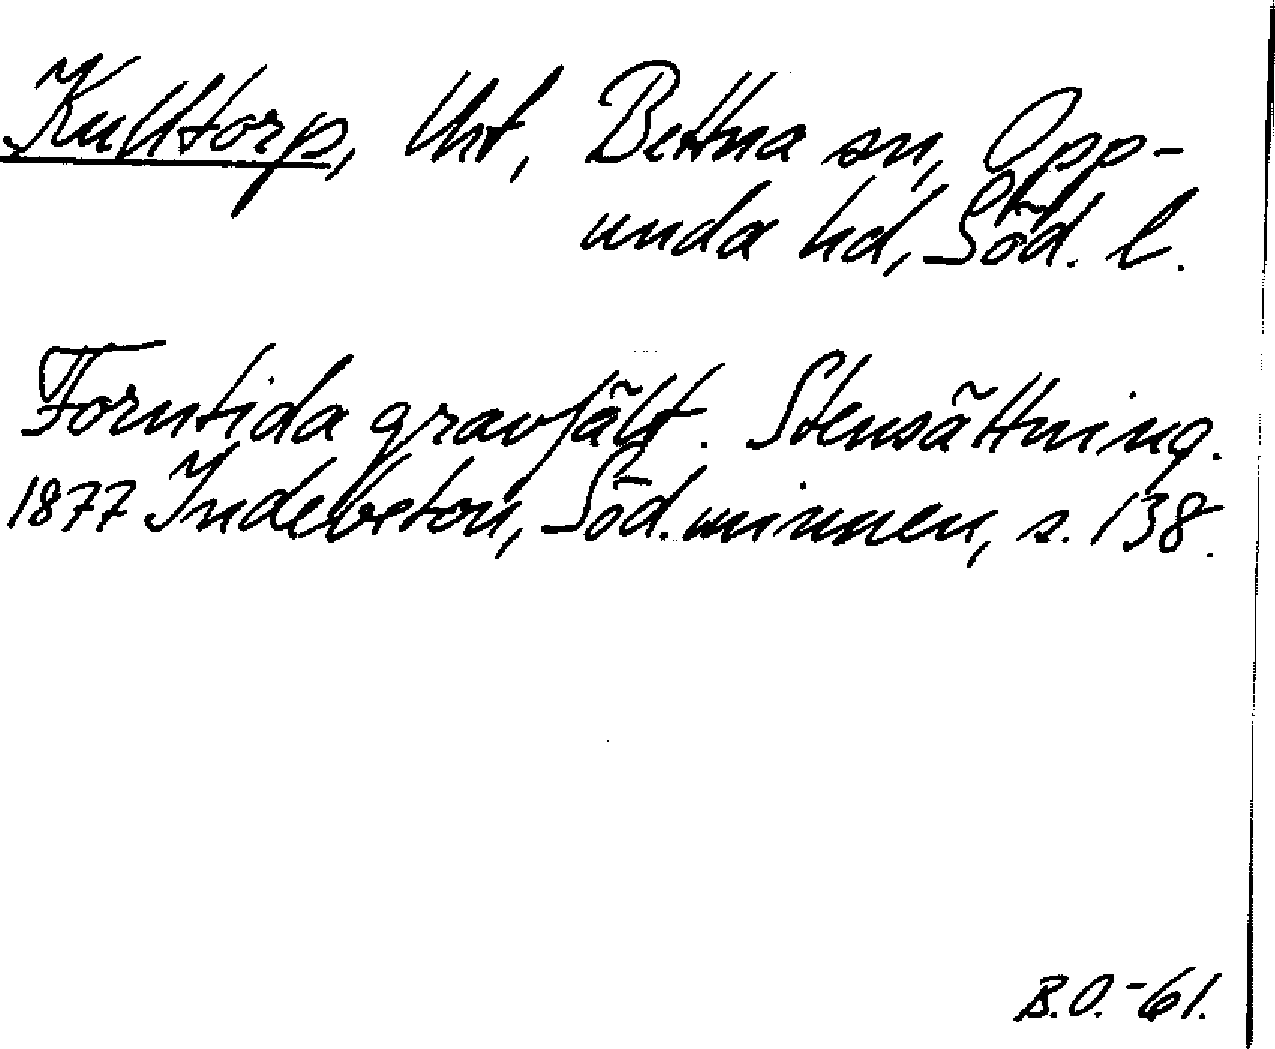 Kulltorp, lht, Bettna sn, Opp-
unda hd, Söd. l.
Forntida gravfält. Stensättning.
1877 Indebetou, Söd. minnen, s. 138.
B.O.-61.